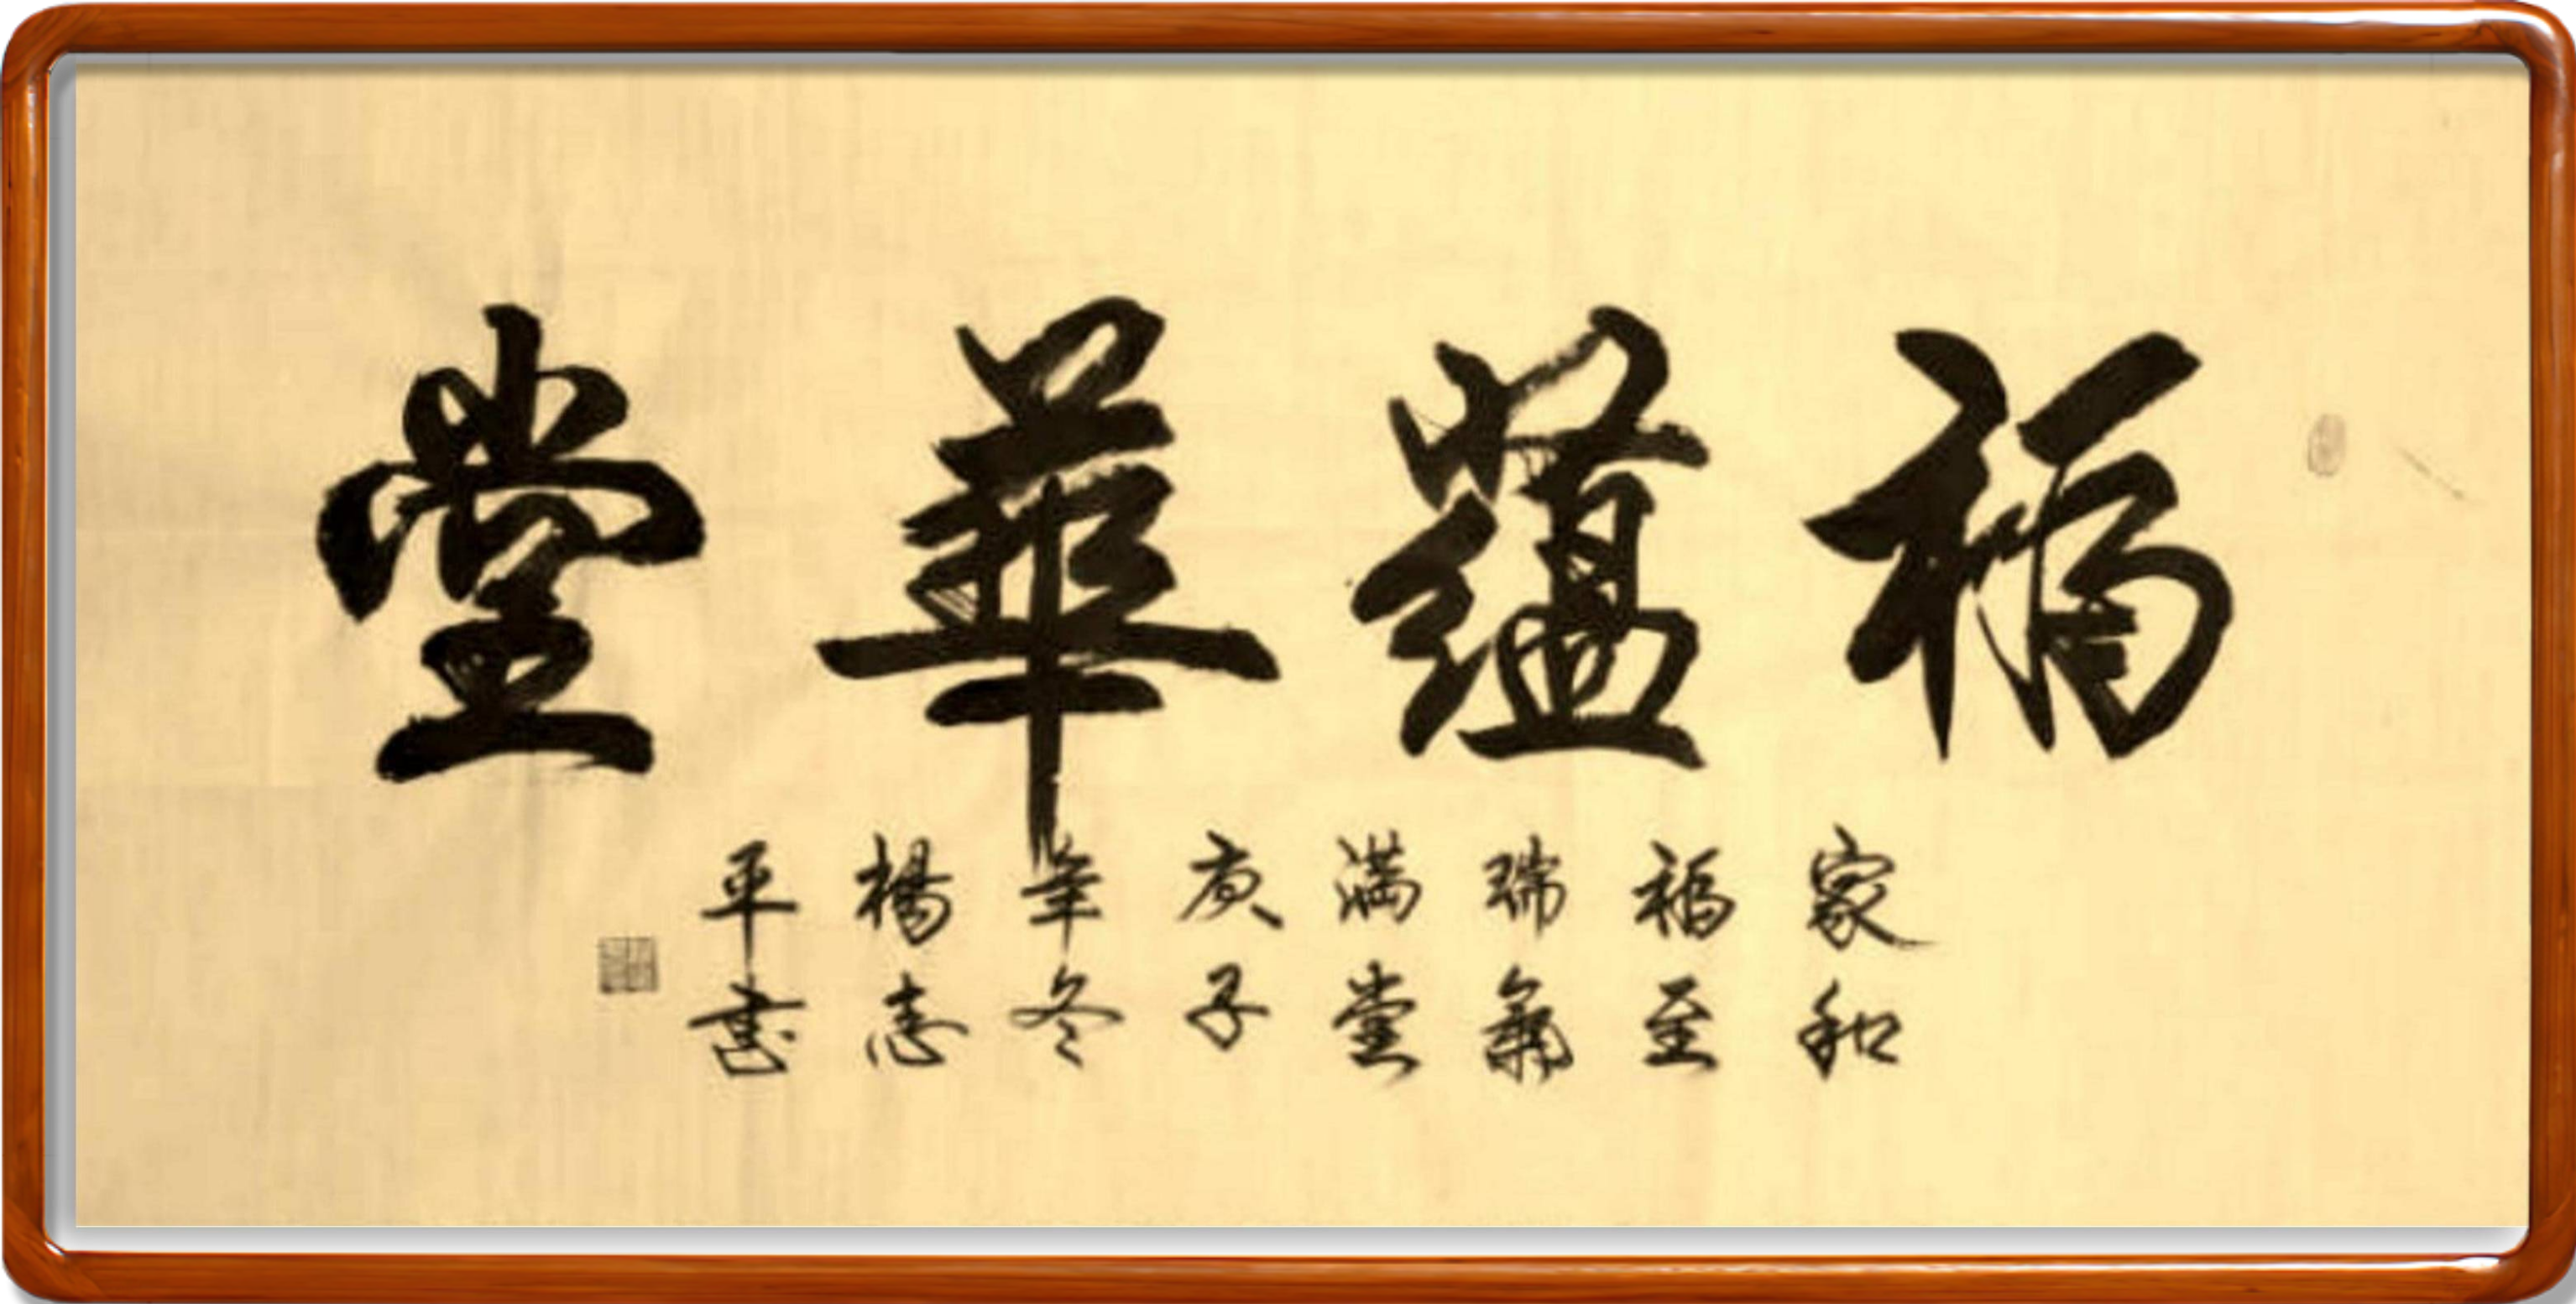 福蘊華堂
家和
福至
瑞氣
满堂
庚子
年冬
楊志
平書